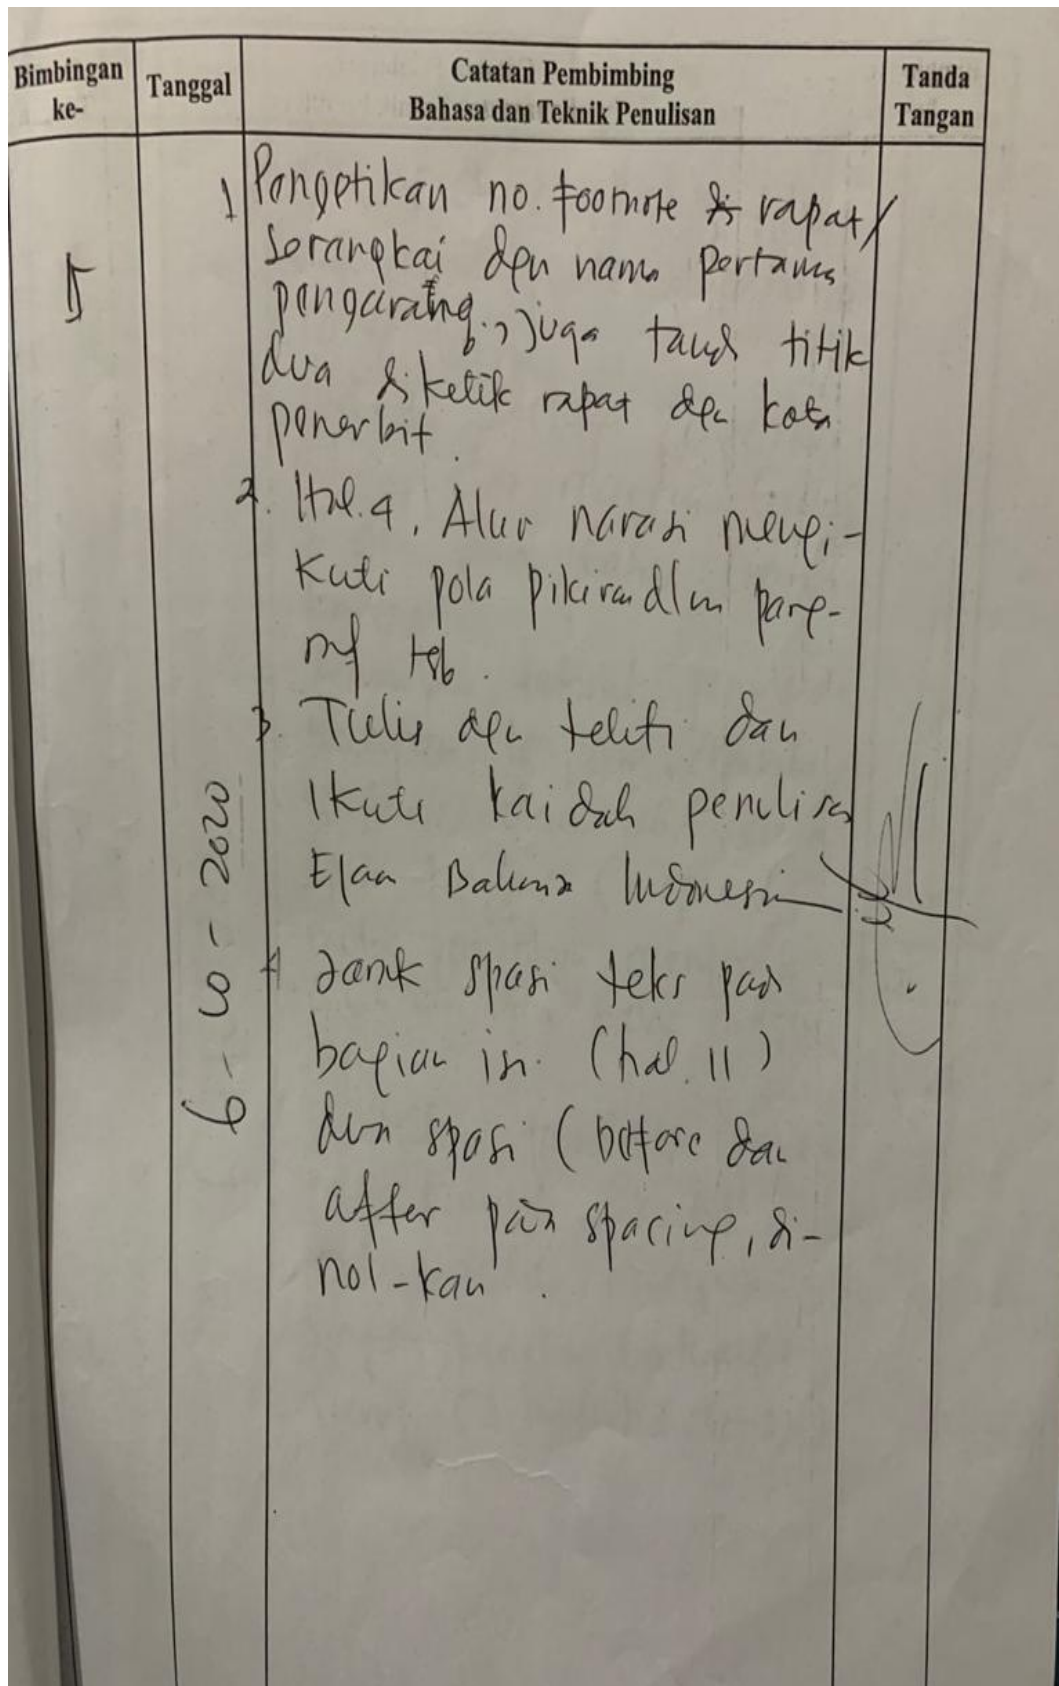 Bimbingan ke-
Tanggal
Catatan Pembimbing
Bahasa dan Teknik Penulisan
Tanda Tangan
5
6 - 10 - 2020
1 Pengetikan no. footnote rapat/
serangkai dgn nama pertama
pengarang., juga tanda titik
dua diketik rapat dgn kota
penerbit.
2. Hal.4, Alur narasi mengi-
kuti pola pikiran dlm parg-
raf tsb.
3. Tulis dgn teliti dan
Ikuti kaidah penulisan
Ejaan Bahasa Indonesia
4 Jarak spasi teks pada
bagian ini (hal. 11)
dua spasi (before dan
after pada spacing, di-
nol-kan.